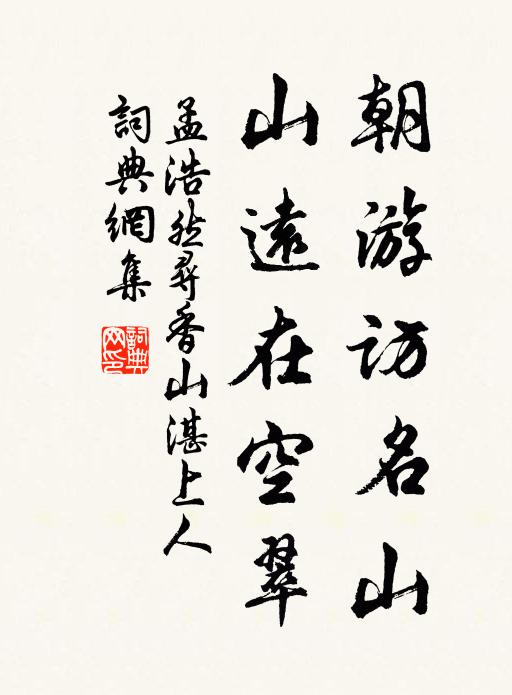 朝游访名山
山遠在空翠
孟浩然尋香山湛上人
詞典網集
詞典网印